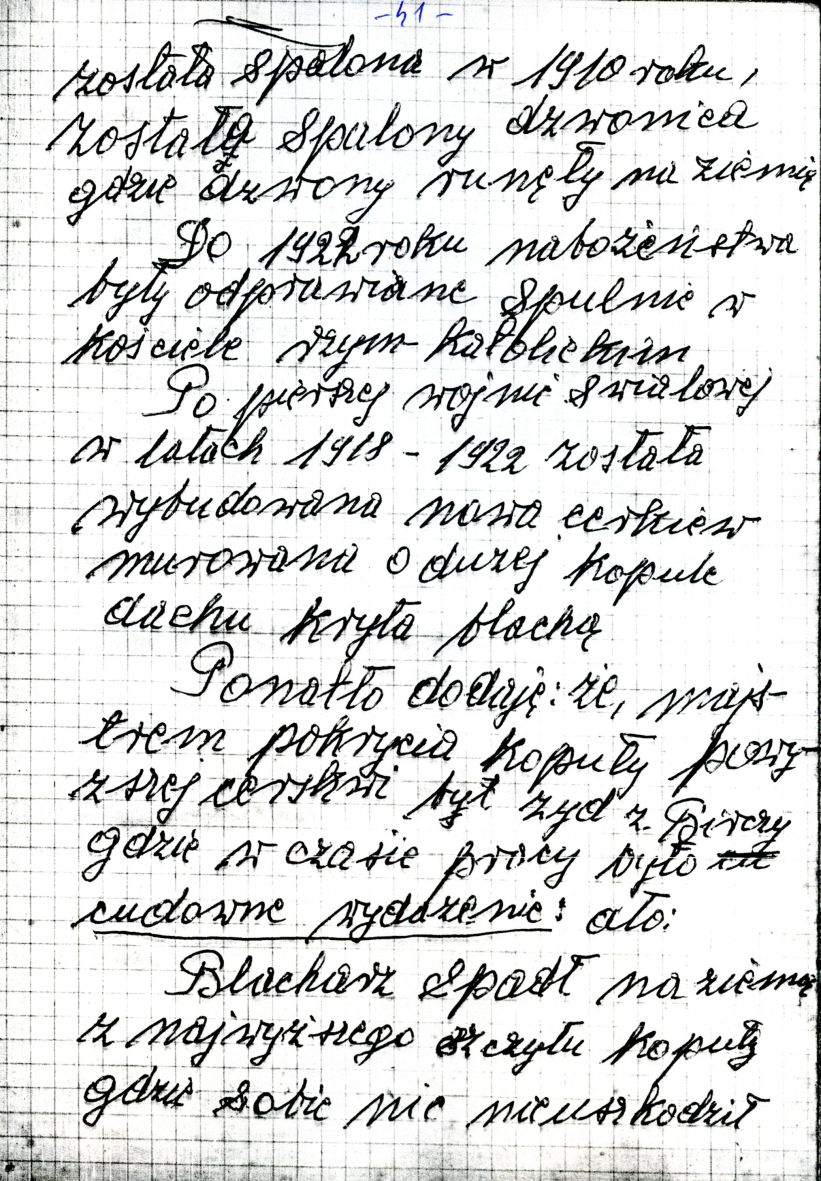 -41-
została spalona w 1910 roku,
została spalony dzwonica
gdzie dzwony runęły na ziemię
Do 1922 roku nabożeństwa
były odprawiane spulnie w
kościele rzym-katolickim
Po pierszej wojnie swialowej
w latach 1918 - 1922 została
wybudowana nowa cerkiew
murowana o dużej kopule
dachu kryta blachą
Ponatto dodaję: że, majs-
trem pokrycia kopuły powy-
zszej cerskwi był zyd z Birczy
gdzie w czasie pracy było
cudowne wydazenie: ato:
Blacharz spadł na ziemię
z najwyższego szczytu kopuły
gdzie sobie nic nieuszkodził